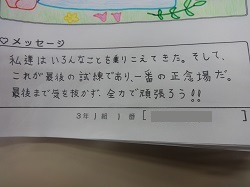 ♡メッセージ
私達はいろんなことを乗りこえてきた。そして、
これが最後の試練であり、一番の正念場だ。
最後まで気を抜かず、全力で頑張ろう!!
3年1組1番[ ]